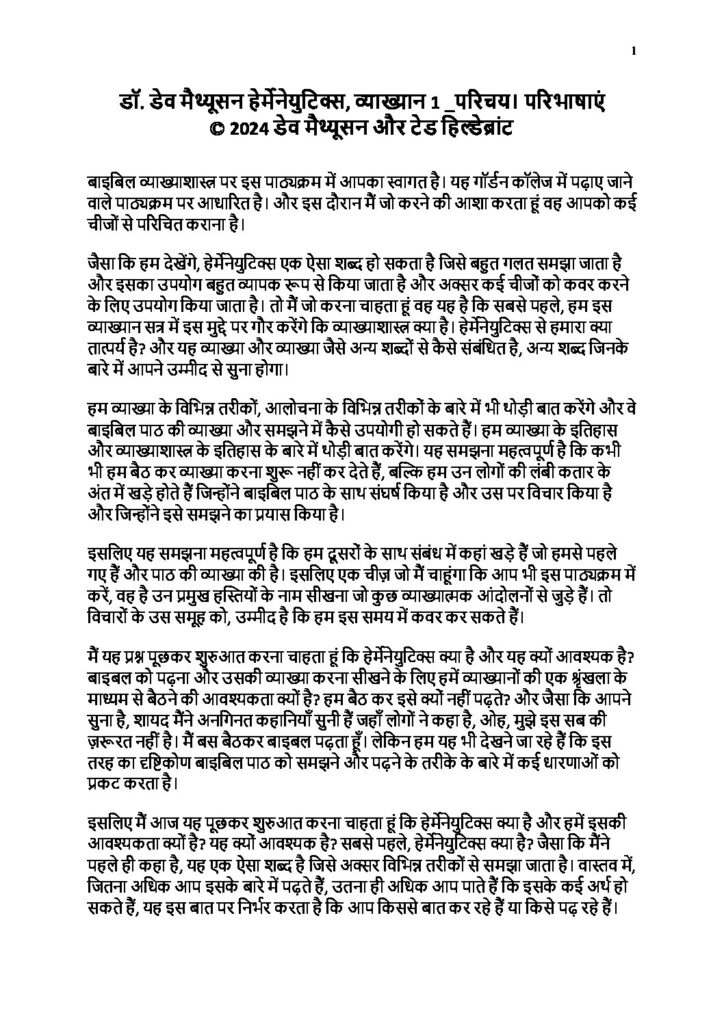 1
डॉ. डेव मैथ्यूसन हेर्मेनेयुटिक्स, व्याख्यान 1 _परिचय। परिभाषाएं
© 2024 डेव मैथ्यूसन और टेड हिल्डेब्रांट
बाइबिल व्याख्याशास्त्र पर इस पाठ्यक्रम में आपका स्वागत है। यह गॉर्डन कॉलेज में पढ़ाए जाने
वाले पाठ्यक्रम पर आधारित है। और इस दौरान मैं जो करने की आशा करता हूं वह आपको कई
चीजों से परिचित कराना है।
जैसा कि हम देखेंगे, हेर्मेनेयुटिक्स एक ऐसा शब्द हो सकता है जिसे बहुत गलत समझा जाता है
और इसका उपयोग बहुत व्यापक रूप से किया जाता है और अक्सर कई चीजों को कवर करने
के लिए उपयोग किया जाता है। तो मैं जो करना चाहता हूं वह यह है कि सबसे पहले, हम इस
व्याख्यान सत्र में इस मुद्दे पर गौर करेंगे कि व्याख्याशास्त्र क्या है। हेर्मेनेयुटिक्स से हमारा क्या
तात्पर्य है? और यह व्याख्या और व्याख्या जैसे अन्य शब्दों से कैसे संबंधित है, अन्य शब्द जिनके
बारे में आपने उम्मीद से सुना होगा।
हम व्याख्या के विभिन्न तरीकों, आलोचना के विभिन्न तरीकों के बारे में भी थोड़ी बात करेंगे और वे
बाइबिल पाठ की व्याख्या और समझने में कैसे उपयोगी हो सकते हैं। हम व्याख्या के इतिहास
और व्याख्याशास्त्र के इतिहास के बारे में थोड़ी बात करेंगे। यह समझना महत्वपूर्ण है कि कभी
भी हम बैठ कर व्याख्या करना शुरू नहीं कर देते हैं, बल्कि हम उन लोगों की लंबी कतार के
अंत में खड़े होते हैं जिन्होंने बाइबिल पाठ के साथ संघर्ष किया है और उस पर विचार किया है
और जिन्होंने इसे समझने का प्रयास किया है।
इसलिए यह समझना महत्वपूर्ण है कि हम दूसरों के साथ संबंध में कहां खड़े हैं जो हमसे पहले
गए हैं और पाठ की व्याख्या की है। इसलिए एक चीज़ जो मैं चाहूंगा कि आप भी इस पाठ्यक्रम में
करें, वह है उन प्रमुख हस्तियों के नाम सीखना जो कुछ व्याख्यात्मक आंदोलनों से जुड़े हैं। तो
विचारों के उस समूह को, उम्मीद है कि हम इस समय में कवर कर सकते हैं।
मैं यह प्रश्न पूछकर शुरुआत करना चाहता हूं कि हेर्मेनेयुटिक्स क्या है और यह क्यों आवश्यक है?
बाइबल को पढ़ना और उसकी व्याख्या करना सीखने के लिए हमें व्याख्यानों की एक श्रृंखला के
माध्यम से बैठने की आवश्यकता क्यों है? हम बैठ कर इसे क्यों नहीं पढ़ते? और जैसा कि आपने
सुना है, शायद मैंने अनगिनत कहानियाँ सुनी हैं जहाँ लोगों ने कहा है, ओह, मुझे इस सब की
ज़रूरत नहीं है। मैं बस बैठकर बाइबल पढ़ता हूँ। लेकिन हम यह भी देखने जा रहे हैं कि इस
तरह का दृष्टिकोण बाइबिल पाठ को समझने और पढ़ने के तरीके के बारे में कई धारणाओं को
प्रकट करता है।
इसलिए मैं आज यह पूछकर शुरुआत करना चाहता हूं कि हेर्मेनेयुटिक्स क्या है और हमें इसकी
आवश्यकता क्यों है? यह क्यों आवश्यक है? सबसे पहले, हेर्मेनेयुटिक्स क्या है? जैसा कि मैंने
पहले ही कहा है, यह एक ऐसा शब्द है जिसे अक्सर विभिन्न तरीकों से समझा जाता है। वास्तव में,
जितना अधिक आप इसके बारे में पढ़ते हैं, उतना ही अधिक आप पाते हैं कि इसके कई अर्थ हो
सकते हैं, यह इस बात पर निर्भर करता है कि आप किससे बात कर रहे हैं या किसे पढ़ रहे हैं।